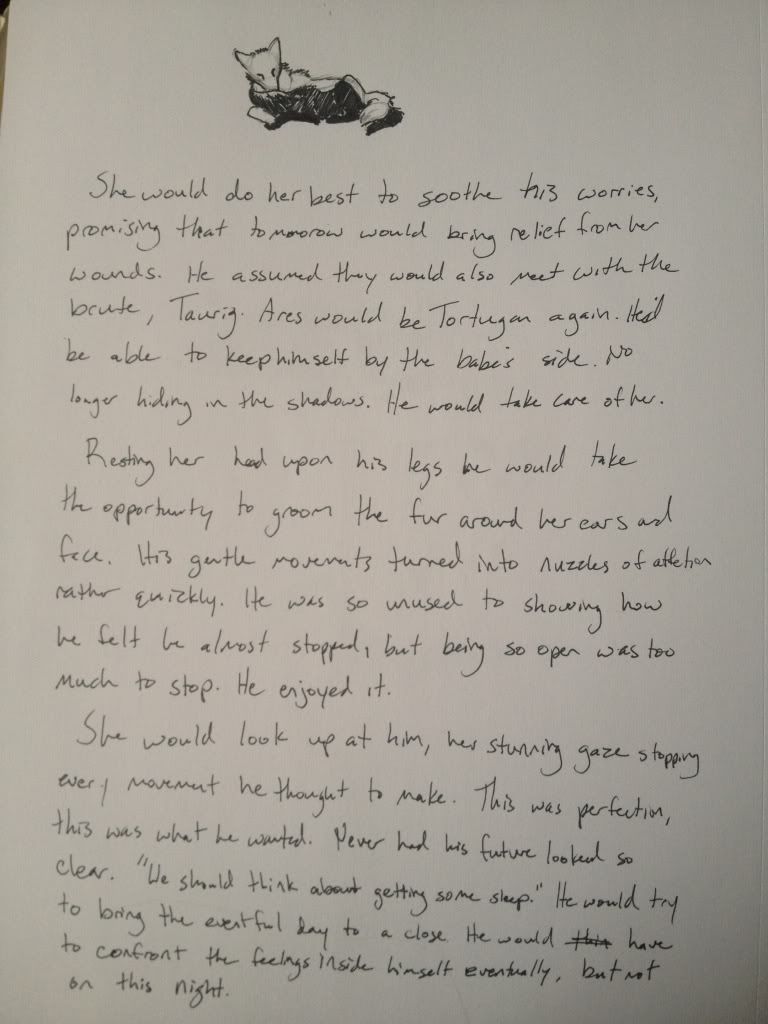 She would do her best to soothe his worries,
promising that tomorrow would bring relief from her
wounds. He assumed they would also meet with the
brute, Taurig. Ares would be Tortugan again. He'd
be able to keep himself by the babe's side. No
longer hiding in the shadows. He would take care of her.
Resting her head upon his legs he would take
the opportunity to groom the fur around her ears and
face. His gentle movements turned into nuzzles of affection
rather quickly. He was so unused to showing how
he felt he almost stopped, but being so open was too
much to stop. He enjoyed it.
She would look up at him, her stunning gaze stopping
every movement he thought to make. This was perfection,
this was what he wanted. Never had his future looked so
clear. "We should think about getting some sleep." He would try
to bring the eventful day to a close. He would this have
to confront the feelings inside himself eventually, but not
on this night.